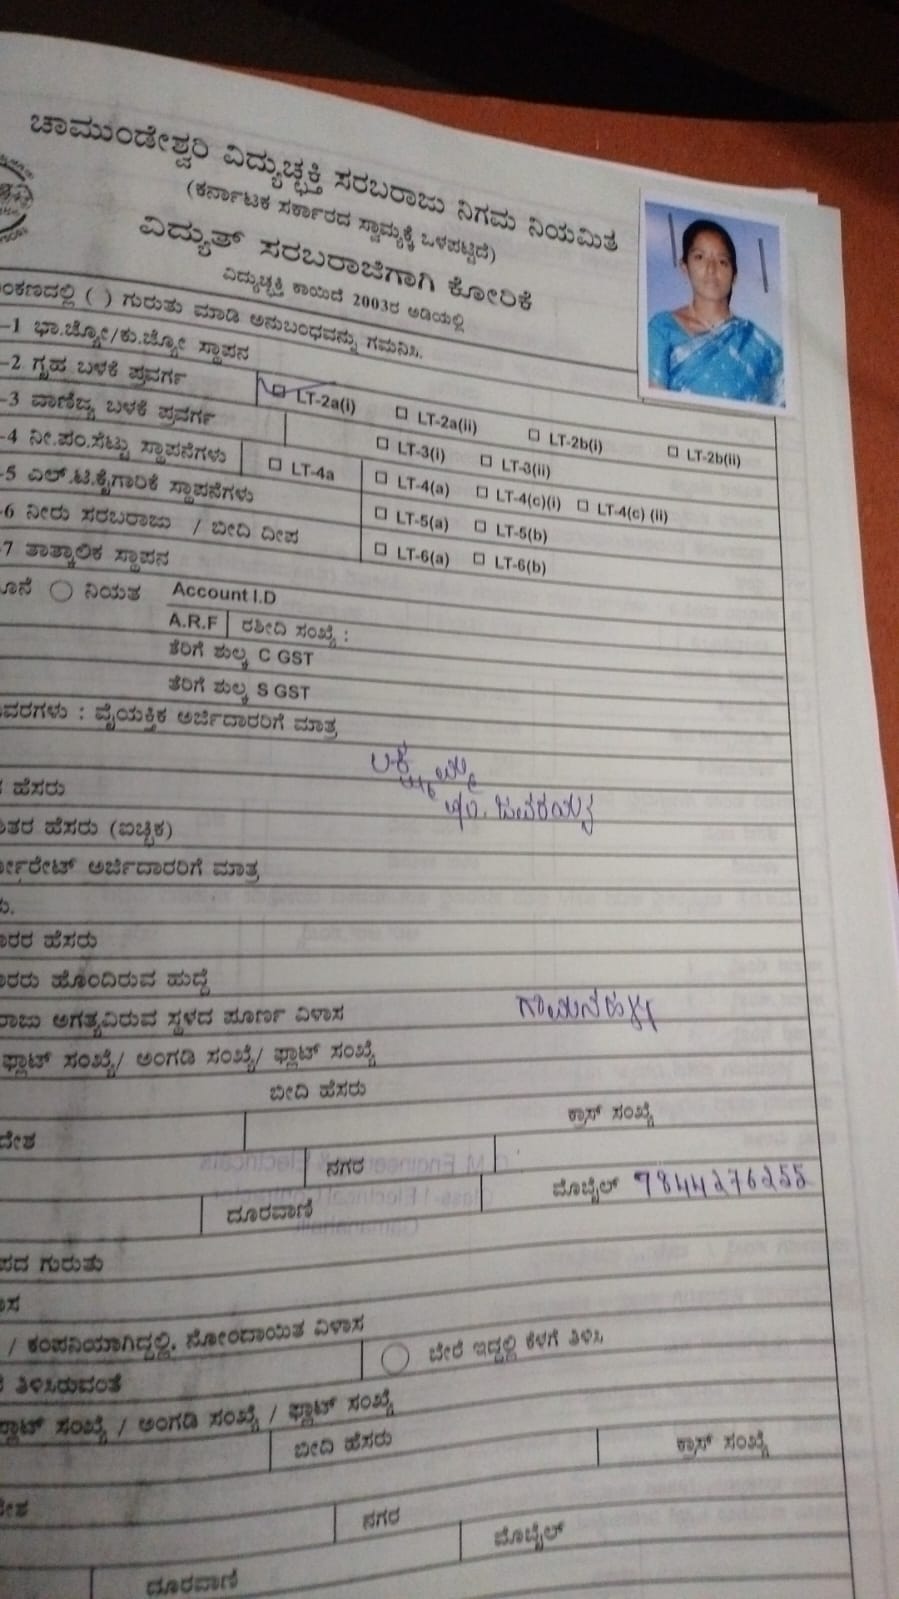 ಚಾಮುಂಡೇಶ್ವರಿ ವಿದ್ಯುಚ್ಛಕ್ತಿ ಸರಬರಾಜು ನಿಗಮ ನಿಯಮಿತ
(ಕರ್ನಾಟಕ ಸರ್ಕಾರದ ಸ್ವಾಮ್ಯಕ್ಕೆ ಒಳಪಟ್ಟಿದೆ)
ವಿದ್ಯುತ್ ಸರಬರಾಜಿಗಾಗಿ ಕೋರಿಕೆ
ವಿದ್ಯುಚ್ಛಕ್ತಿ ಕಾಯಿದೆ 2003ರ ಅಡಿಯಲ್ಲಿ
ಂಕಣದಲ್ಲಿ ( ) ಗುರುತು ಮಾಡಿ ಅನುಬಂಧವನ್ನು ಗಮನಿಸಿ.
–1 ಭಾ.ಜ್ಯೋ/ಕು.ಜ್ಯೋ ಸ್ಥಾಪನ
–2 ಗೃಹ ಬಳಕೆ ಪ್ರವರ್ಗ LT-2a(i) LT-2a(ii) LT-2b(i) LT-2b(ii)
–3 ವಾಣಿಜ್ಯ ಬಳಕೆ ಪ್ರವರ್ಗ LT-3(i) LT-3(ii)
–4 ನೀ.ಪಂ.ಸೆಟ್ಟು ಸ್ಥಾಪನೆಗಳು LT-4a LT-4(a) LT-4(c)(i) LT-4(c) (ii)
–5 ಎಲ್.ಟಿ.ಕೈಗಾರಿಕೆ ಸ್ಥಾಪನೆಗಳು LT-5(a) LT-5(b)
–6 ನೀರು ಸರಬರಾಜು / ಬೀದಿ ದೀಪ LT-6(a) LT-6(b)
–7 ತಾತ್ಕಾಲಿಕ ಸ್ಥಾಪನ
ನಿಯತ Account I.D
A.R.F ರಶೀದಿ ಸಂಖ್ಯೆ :
ತೆರಿಗೆ ಶುಲ್ಕ C GST
ತೆರಿಗೆ ಶುಲ್ಕ S GST
ವರಗಳು : ವೈಯಕ್ತಿಕ ಅರ್ಜಿದಾರರಿಗೆ ಮಾತ್ರ
ಹೆಸರು
ತರ ಹೆಸರು (ಐಚ್ಛಿಕ)
ರ್ಪೊರೇಟ್ ಅರ್ಜಿದಾರರಿಗೆ ಮಾತ್ರ
ಾರರ ಹೆಸರು
ಾರರು ಹೊಂದಿರುವ ಹುದ್ದೆ
ರಾಜು ಅಗತ್ಯವಿರುವ ಸ್ಥಳದ ಪೂರ್ಣ ವಿಳಾಸ ಗಾಮನಹಳ್ಳಿ
ಫ್ಲಾಟ್ ಸಂಖ್ಯೆ/ ಅಂಗಡಿ ಸಂಖ್ಯೆ/ ಫ್ಲಾಟ್ ಸಂಖ್ಯೆ
ಬೀದಿ ಹೆಸರು
ಕ್ರಾಸ್ ಸಂಖ್ಯೆ
ದೇಶ
ನಗರ
ದೂರವಾಣಿ ಮೊಬೈಲ್ 9844276255
ಪದ ಗುರುತು
/ ಕಂಪನಿಯಾಗಿದ್ದಲ್ಲಿ, ನೋಂದಾಯಿತ ವಿಳಾಸ
ತಿಳಿಸಿರುವಂತೆ ಬೇರೆ ಇದ್ದಲ್ಲಿ ಕೆಳಗೆ ತಿಳಿಸಿ
ಫ್ಲಾಟ್ ಸಂಖ್ಯೆ / ಅಂಗಡಿ ಸಂಖ್ಯೆ / ಫ್ಲಾಟ್ ಸಂಖ್ಯೆ
ಬೀದಿ ಹೆಸರು ಕ್ರಾಸ್ ಸಂಖ್ಯೆ
ದೇಶ
ನಗರ
ದೂರವಾಣಿ ಮೊಬೈಲ್